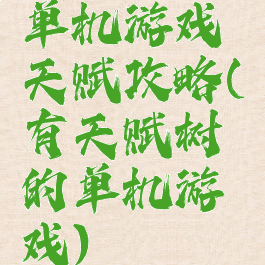 单机游戏
天赋攻略(
有天赋树
的单机游
戏)